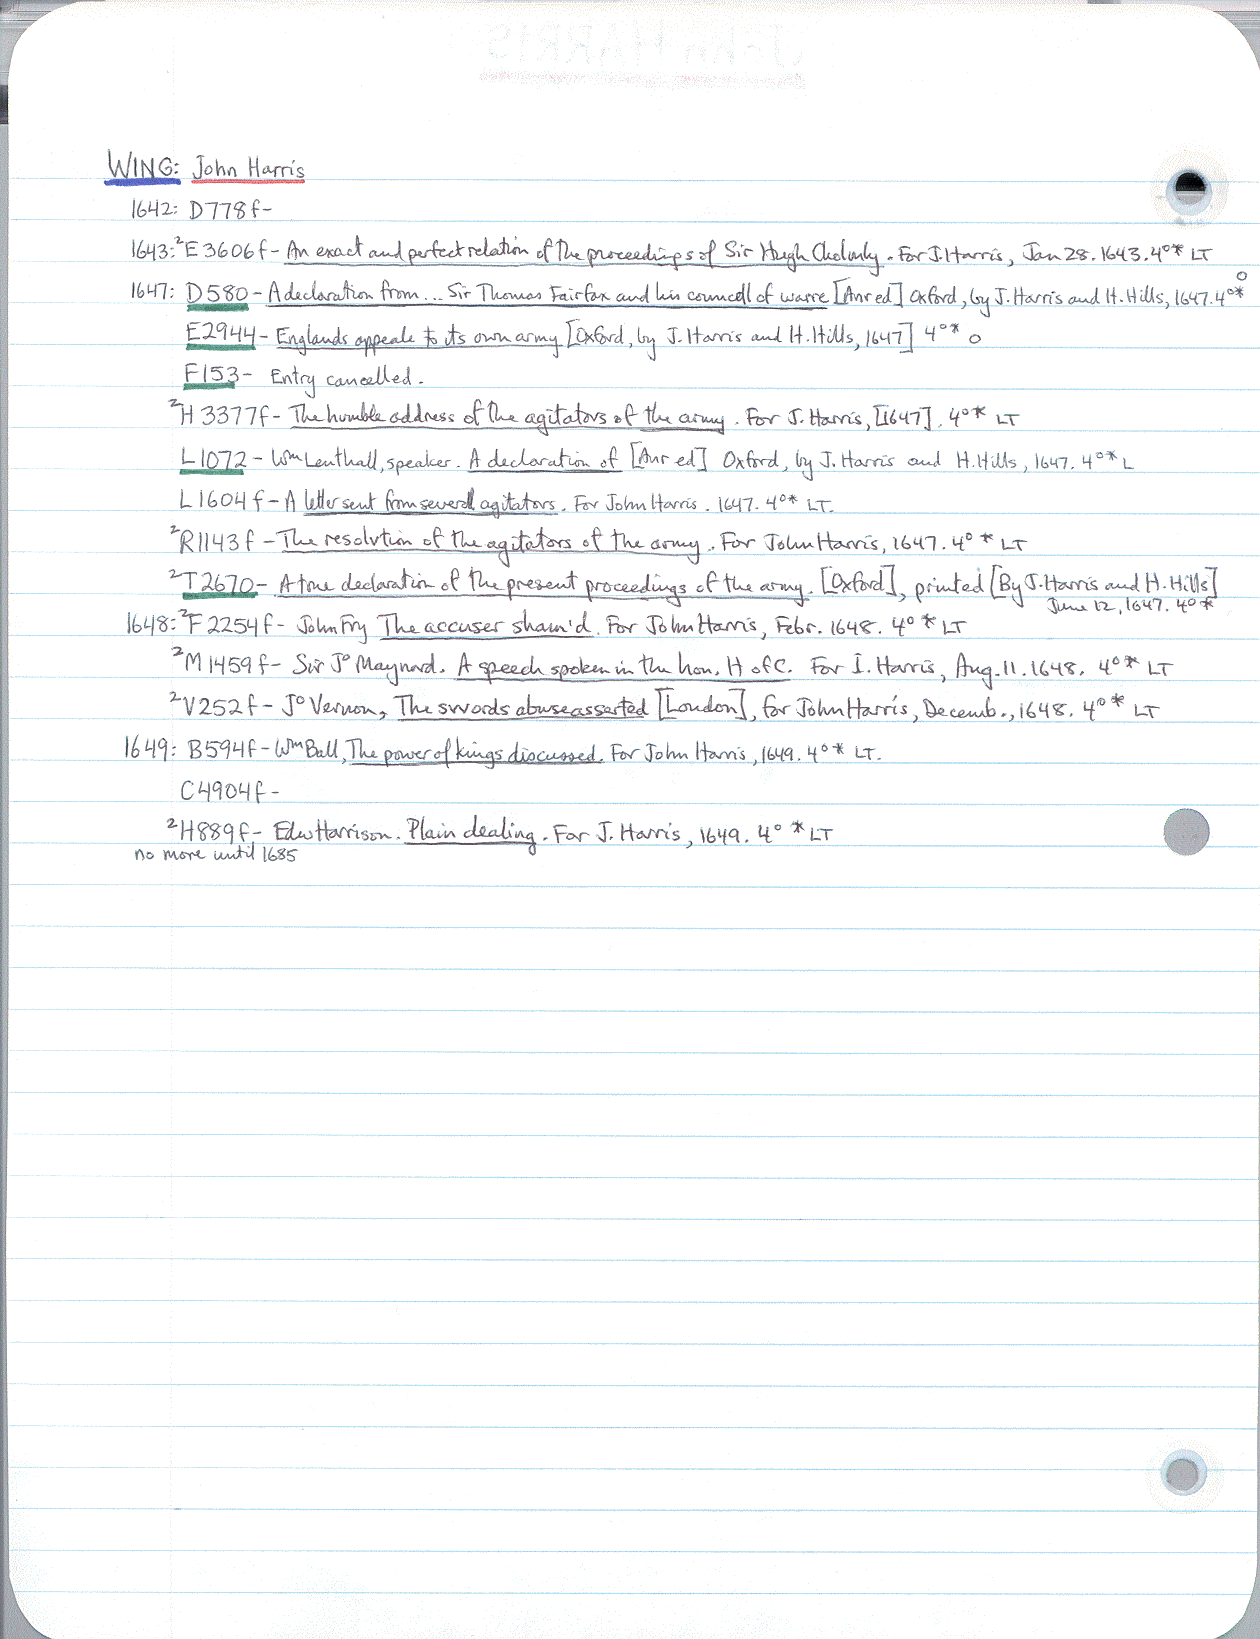 WING: John Harris
1642: D778f-
1643: ²E3606f- An exact and perfect relation of the proceedings of Sir Hugh Cholmly. For J. Harris, Jan 28. 1643. 4°* LT
1647: D580- A declaration from... Sir Thomas Fairfax and his councell of warre [Anr ed] Oxford, by J. Harris and H. Hills, 1647. 4°* O
E2944- Englands appeale to its own army [Oxford, by J. Harris and H. Hills, 1647] 4°* O
F153- Entry cancelled.
²H3377f- The humble address of the agitators of the army. For J. Harris, [1647]. 4°* LT
L1072- Wm Lenthall, speaker. A declaration of [Anr ed] Oxford, by J. Harris and H. Hills, 1647. 4°* L
L1604f- A letter sent from severall agitators. For John Harris. 1647. 4°* LT.
²R1143f- The resolution of the agitators of the army. For John Harris, 1647. 4°* LT
²T2670- A true declaration of the present proceedings of the army. [Oxford], printed [By J. Harris and H. Hills]
June 12, 1647. 4°*
1648: ²F2254f- John Fry The accuser sham'd. For John Harris, Febr. 1648. 4°* LT
²M1459f- Sir Jo Maynard. A speech spoken in the hon. H of C. For I. Harris, Aug. 11. 1648. 4°* LT
²V252f- Jo Vernon, The swords abuse asserted [London], for John Harris, Decemb., 1648. 4°* LT
1649: B594f- Wm Ball, The power of kings discussed. For John Harris, 1649. 4°* LT.
C4904f-
²H889f- Edw Harrison. Plain dealing. For J. Harris, 1649. 4°* LT
no more until 1685